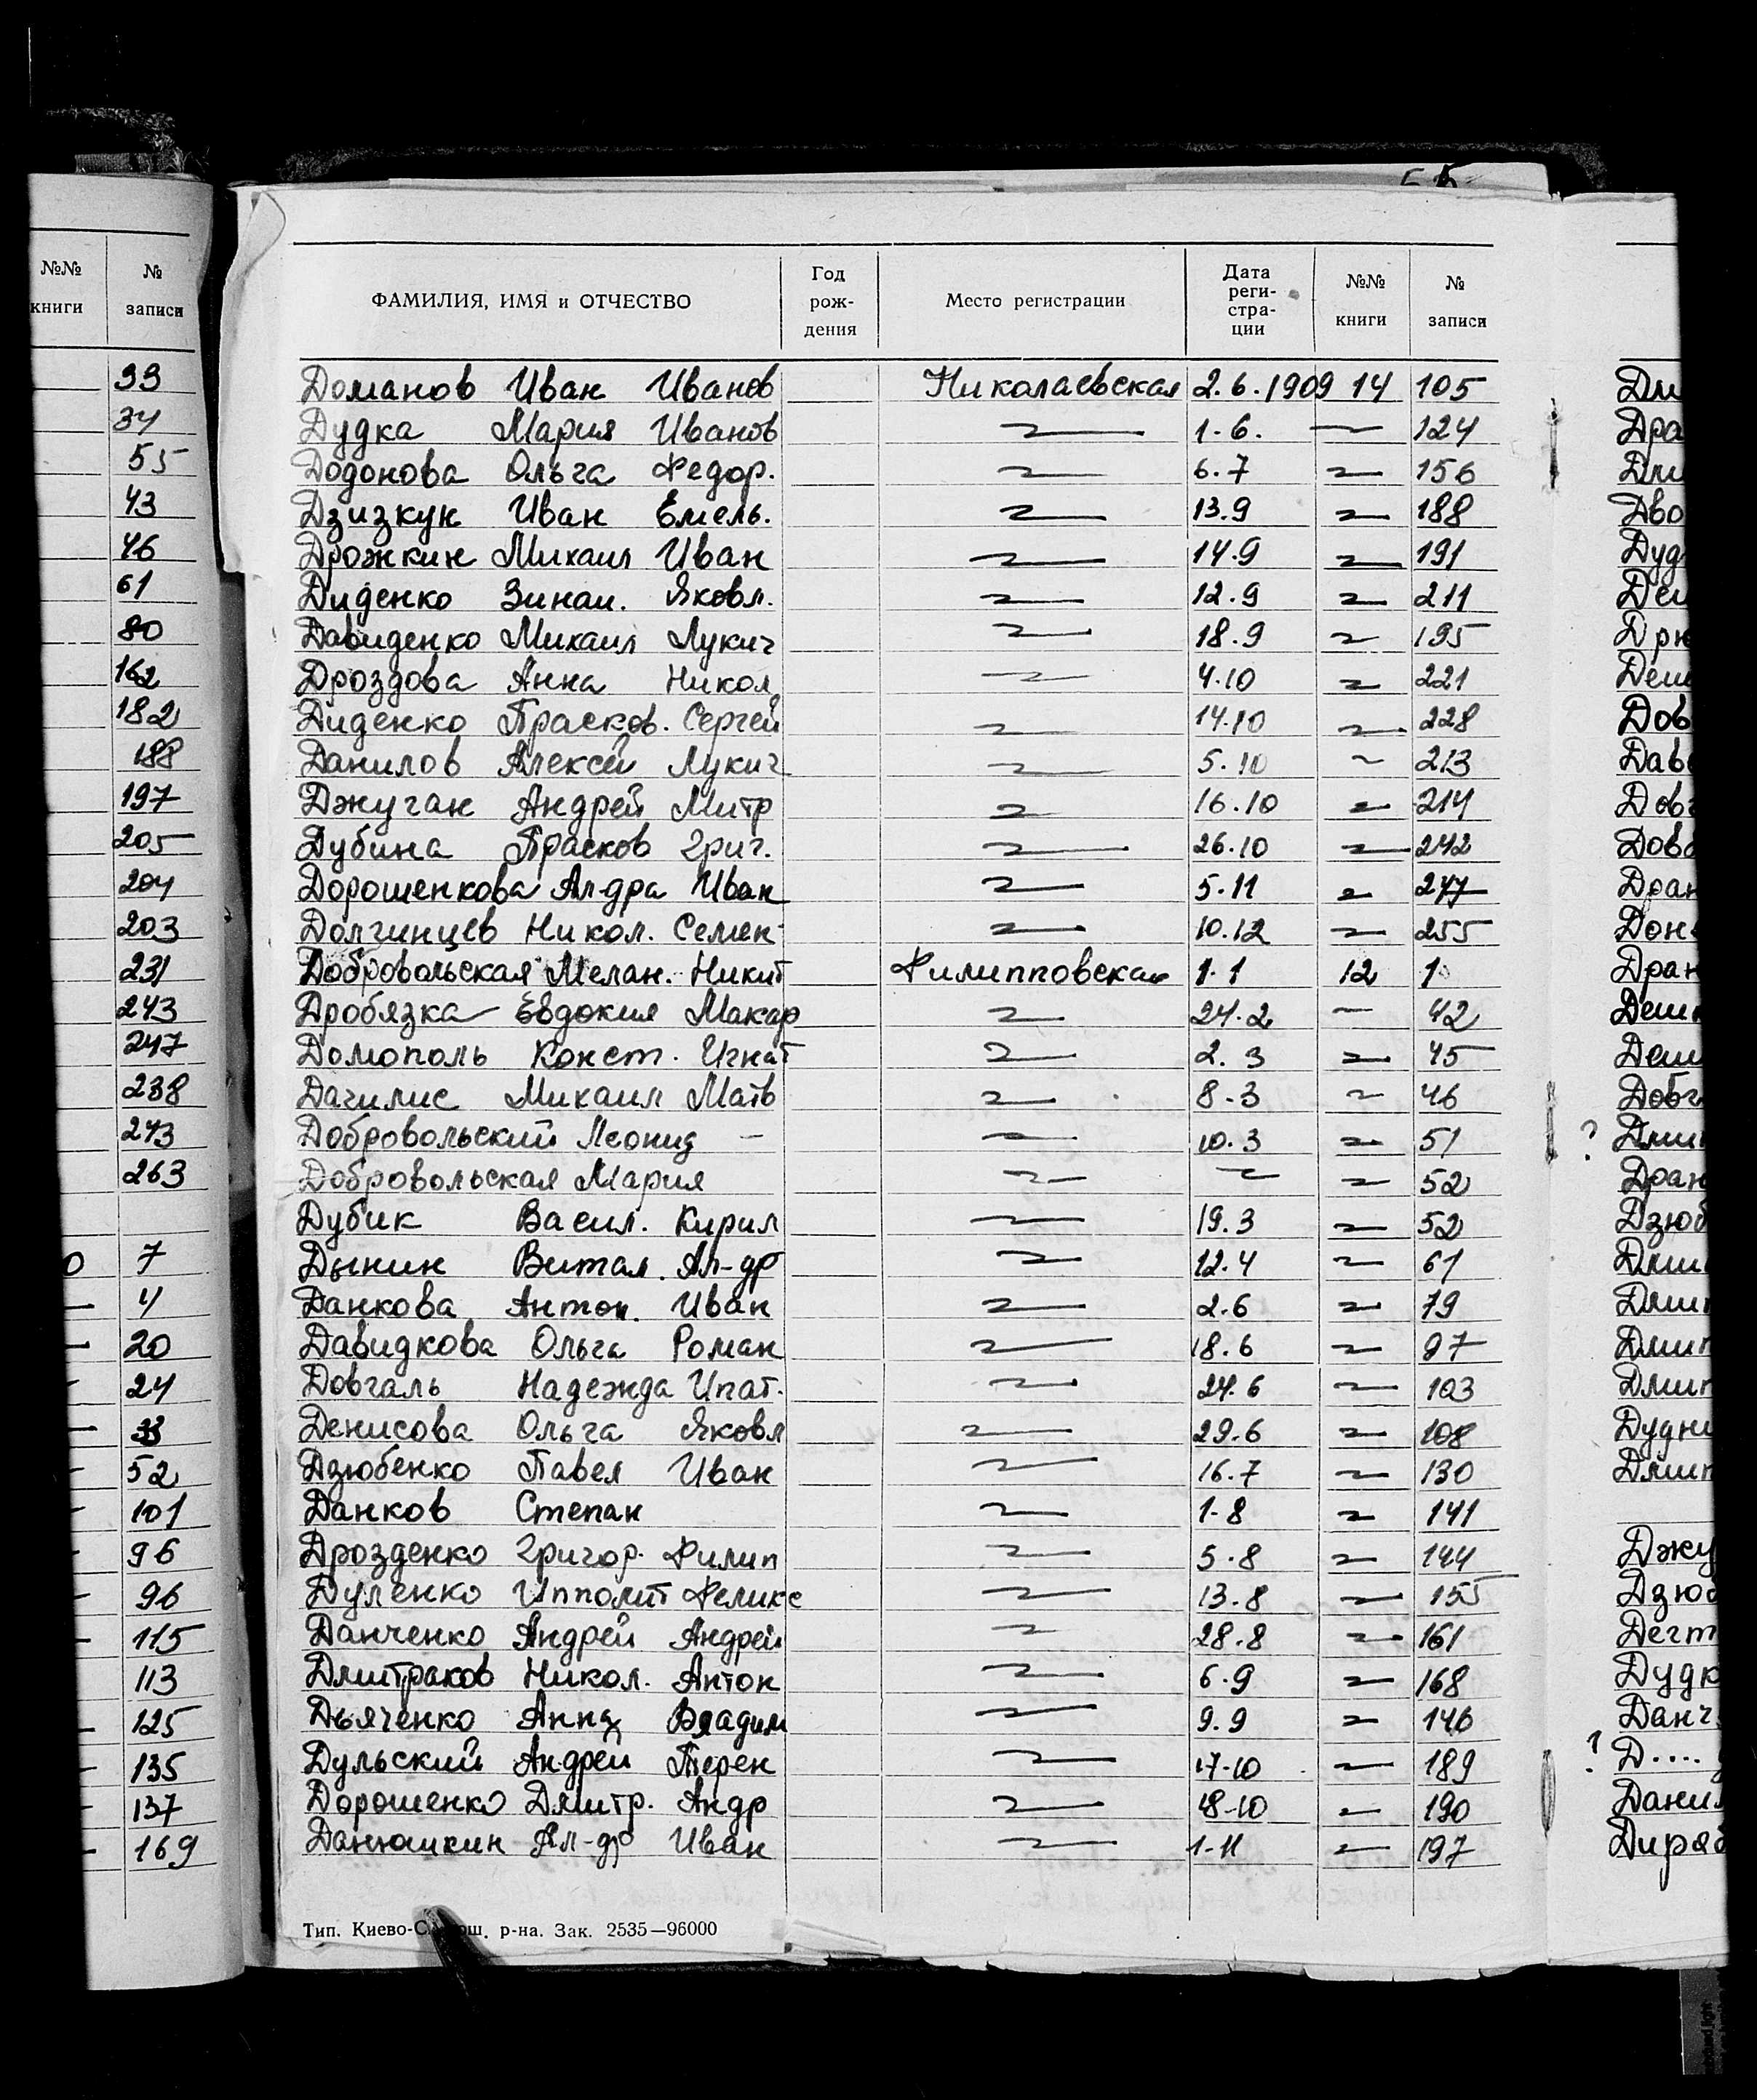 №№ книги № записи
33
34
55
43
46
61
80
162
182
188
197
205
204
203
231
243
247
238
243
263
7
4
20
24
33
52
101
96
96
115
113
125
135
137
169
ФАМИЛИЯ, ИМЯ и ОТЧЕСТВО Год рож- дения Место регистрации Дата реги- стра- ции №№ книги № записи
Доманов Иван Иванов Николаевская 2.6.1909 14 105
Дудка Мария Иванов 1.6. 124
Додонова Ольга Федор. 6.7 156
Дзизкун Иван Емель. 13.9 188
Дрожкин Михаил Иван 14.9 191
Диденко Зинаи. Яковл. 12.9 211
Давиденко Михаил Лукич 18.9 195
Дроздова Анна Никол 4.10 221
Диденко Прасков. Сергей 14.10 228
Данилов Алексей Лукич 5.10 213
Джуган Андрей Митр 16.10 214
Дубина Прасков Григ. 26.10 242
Дорошенкова Ал-дра Иван 5.11 247
Долгинцев Никол. Семен 10.12 255
Добровольская Мелан. Никит Филипповская 1.1 12 1
Дробязка Евдокия Макар 24.2 42
Домополь Конст. Игнат 2.3 45
Дагилис Михаил Матв 8.3 46
Добровольский Леонид — 10.3 51
Добровольская Мария 52
Дубик Васил. Кирил 19.3 52
Дынин Витал. Ал-др 12.4 61
Данкова Антон. Иван 2.6 79
Давидкова Ольга Роман 18.6 97
Довгаль Надежда Ипат. 24.6 103
Денисова Ольга Яковл 29.6 108
Дзюбенко Павел Иван 16.7 130
Данков Степан 1-8 141
Дрозденко Григор. Филип 5.8 144
Дуленко Ипполит Феликс 13.8 155
Данченко Андрей Андрей 28.8 161
Дмитраков Никол. Антон 6.9 168
Дьяченко Анна Владим 9.9 146
Дульский Андрей Терен 17-10 189
Дорошенко Дмитр. Андр 18-10 190
Данюшкин Ал-др Иван 1-11 197
Тип. Киево-С ош. р-на. Зак. 2535—96000